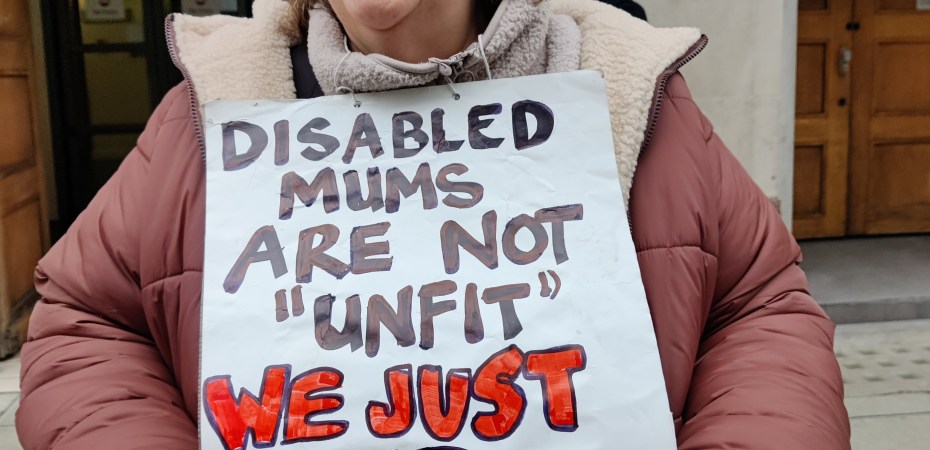 DISABLED
MUMS
ARE NOT
"UNFIT"
WE JUST